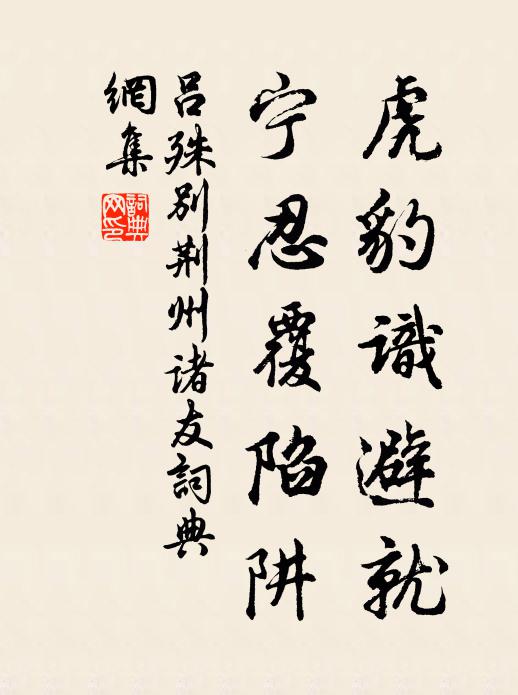 虎豹識避就
宁忍覆陷阱
吕殊別荆州诸友詞典
網集
詞典
网印